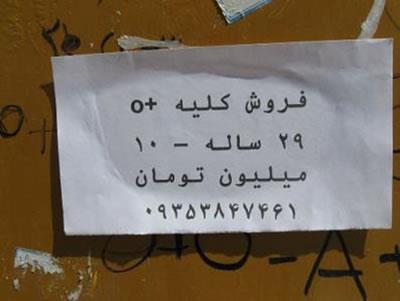 فروش کلیه o+
۲۹ ساله – ۱۰
میلیون تومان
۰۹۳۵۳۸۴۷۴۶۱
O+
O+O-A+